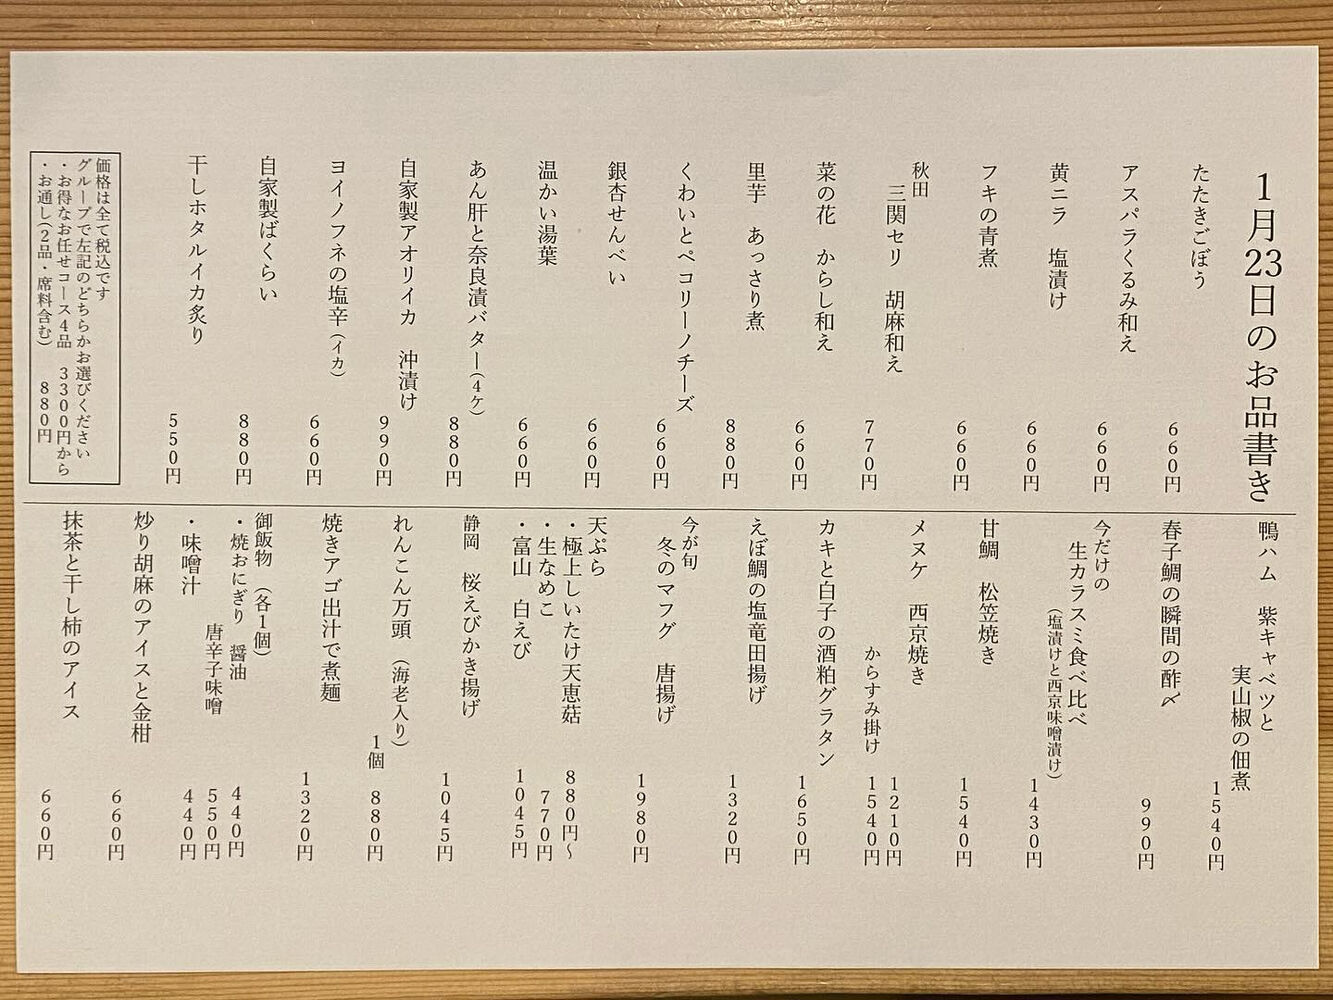 1月23日のお品書き
たたきごぼう 660円
アスパラくるみ和え 660円
黄ニラ 塩漬け 660円
フキの青煮 660円
秋田
三関セリ 胡麻和え 770円
菜の花 からし和え 660円
里芋 あっさり煮 880円
くわいとペコリーノチーズ 660円
銀杏せんべい 660円
温かい湯葉 660円
あん肝と奈良漬バター(4ケ) 880円
自家製アオリイカ 沖漬け 990円
ヨイノフネの塩辛(イカ) 660円
自家製ばくらい 880円
干しホタルイカ炙り 550円
価格は全て税込です
グループで左記のどちらかお選びください
・お得なお任せコース4品 3300円から
・お通し(2品・席料含む) 880円
鴨ハム 紫キャベツと
実山椒の佃煮 1540円
春子鯛の瞬間の酢〆 990円
今だけの
生カラスミ食べ比べ
(塩漬けと西京味噌漬け) 1430円
甘鯛 松笠焼き 1540円
メヌケ 西京焼き 1210円
からすみ掛け 1540円
カキと白子の酒粕グラタン 1650円
えぼ鯛の塩竜田揚げ 1320円
今が旬
冬のマフグ 唐揚げ 1980円
天ぷら
・極上しいたけ天恵菇 880円〜
・生なめこ 770円
・富山 白えび 1045円
静岡 桜えびかき揚げ 1045円
れんこん万頭 (海老入り)
1個 880円
焼きアゴ出汁で煮麺 1320円
御飯物 (各1個)
・焼おにぎり 醤油 440円
唐辛子味噌 550円
・味噌汁 440円
炒り胡麻のアイスと金柑 660円
抹茶と干し柿のアイス 660円